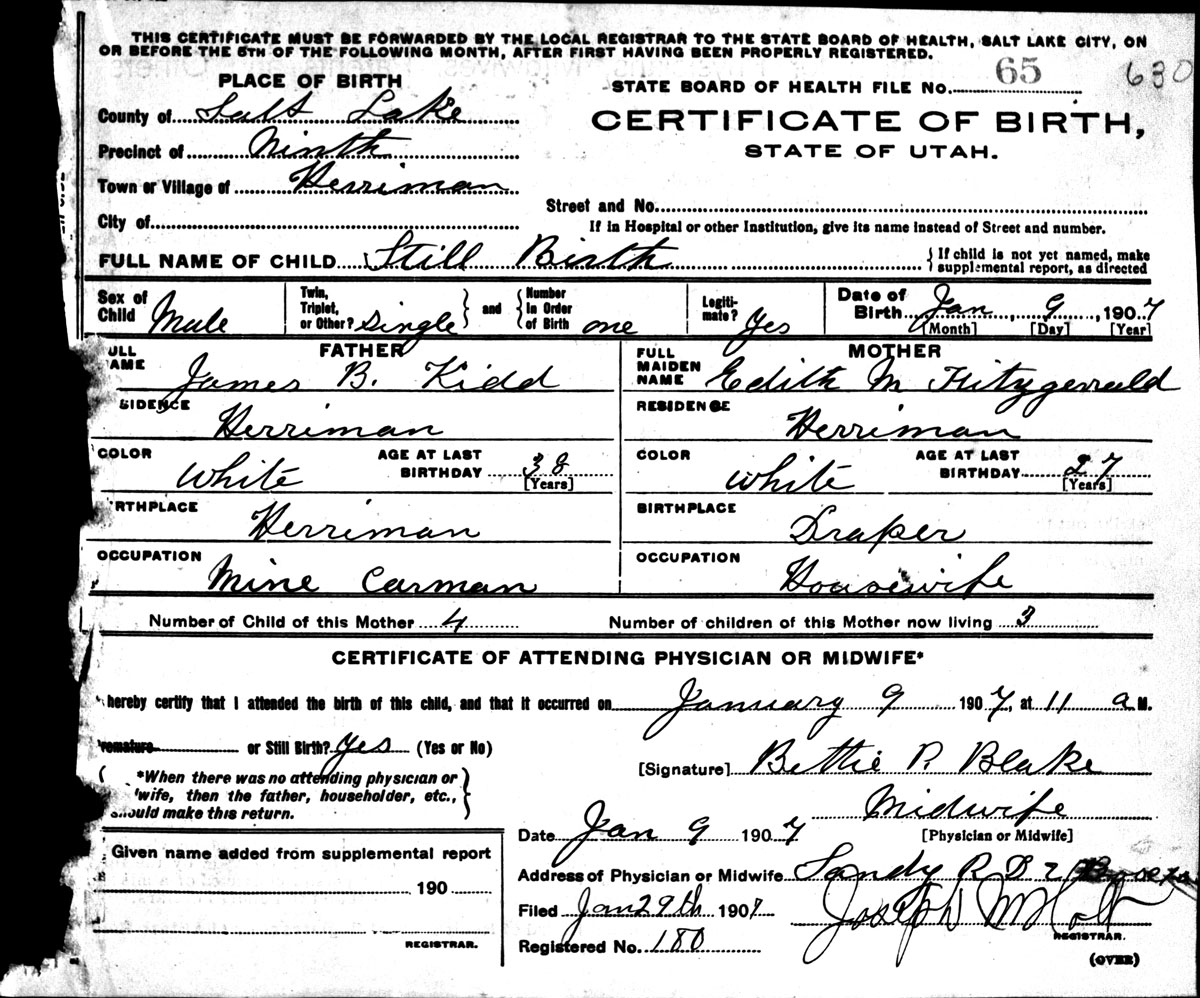 THIS CERTIFICATE MUST BE FORWARDED BY THE LOCAL REGISTRAR TO THE STATE BOARD OF HEALTH, SALT LAKE CITY, ON
OR BEFORE THE 5TH OF THE FOLLOWING MONTH, AFTER FIRST HAVING BEEN PROPERLY REGISTERED.
PLACE OF BIRTH
STATE BOARD OF HEALTH FILE No. 65 630
County of Salt Lake
CERTIFICATE OF BIRTH,
Precinct of Ninth
STATE OF UTAH.
Town or Village of Herriman
Street and No.
City of
If in Hospital or other Institution, give its name instead of Street and number.
FULL NAME OF CHILD Still Birth
If child is not yet named, make
supplemental report, as directed
Sex of Child Male
Twin, Triplet, or Other? Single
and
Number in Order of Birth one
Legitimate? Yes
Date of Birth Jan 9, 1907
[Month] [Day] [Year]
FATHER
MOTHER
ULL AME James B. Kidd
FULL MAIDEN NAME Edith M Fitzgerrald
SIDENCE Herriman
RESIDENCE Herriman
COLOR White AGE AT LAST BIRTHDAY 38 [Years]
COLOR White AGE AT LAST BIRTHDAY 27 [Years]
RTHPLACE Herriman
BIRTHPLACE Draper
OCCUPATION Mine Carman
OCCUPATION Housewife
Number of Child of this Mother 4
Number of children of this Mother now living 3
CERTIFICATE OF ATTENDING PHYSICIAN OR MIDWIFE*
hereby certify that I attended the birth of this child, and that it occurred on January 9 1907, at 11 a M.
remature or Still Birth? Yes (Yes or No)
[Signature] Bettie P. Blake
*When there was no attending physician or
wife, then the father, householder, etc.,
should make this return.
Midwife
[Physician or Midwife]
Date Jan 9 1907
Given name added from supplemental report
190
REGISTRAR.
Address of Physician or Midwife Sandy R D 2
Filed Jan 29th 1907
Joseph M Holt
REGISTRAR.
Registered No. 180
(OVER)